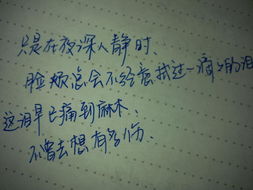 只是在夜深人静时、
脸颊总会不经意拭过一滴滴的泪
这泪早已痛到麻木、
不曾去想有多伤